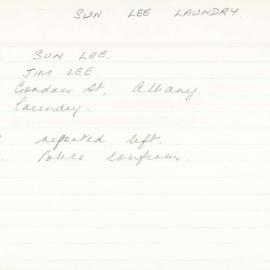 SUN LEE LAUNDRY
SUN LEE.
JIM LEE
Gordon St. Albany.
Laundry.
reported left.
Police confirm.